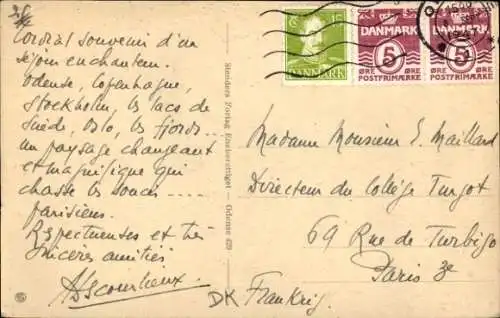 Cordial souvenir d'un
séjour enchanteur.
Odense, Copenhague,
Stockholm, les lacs de
Suède, Oslo, les fjords...
un paysage changeant
et magnifique qui
chasse les soucis
parisiens.
Respectueuses et très
sincères amitiés
Stenders Forlag Eneberettiget - Odense 429
15
DANMARK
DANMARK
5
ØRE ØRE
POSTFRIMÆRKE
DANMARK
5
ØRE ØRE
POSTFRIMÆRKE
Madame Monsieur E. Maillard
Directeur du Collège Turgot
69 Rue de Turbigo
Paris 3e
DK Frankrig.